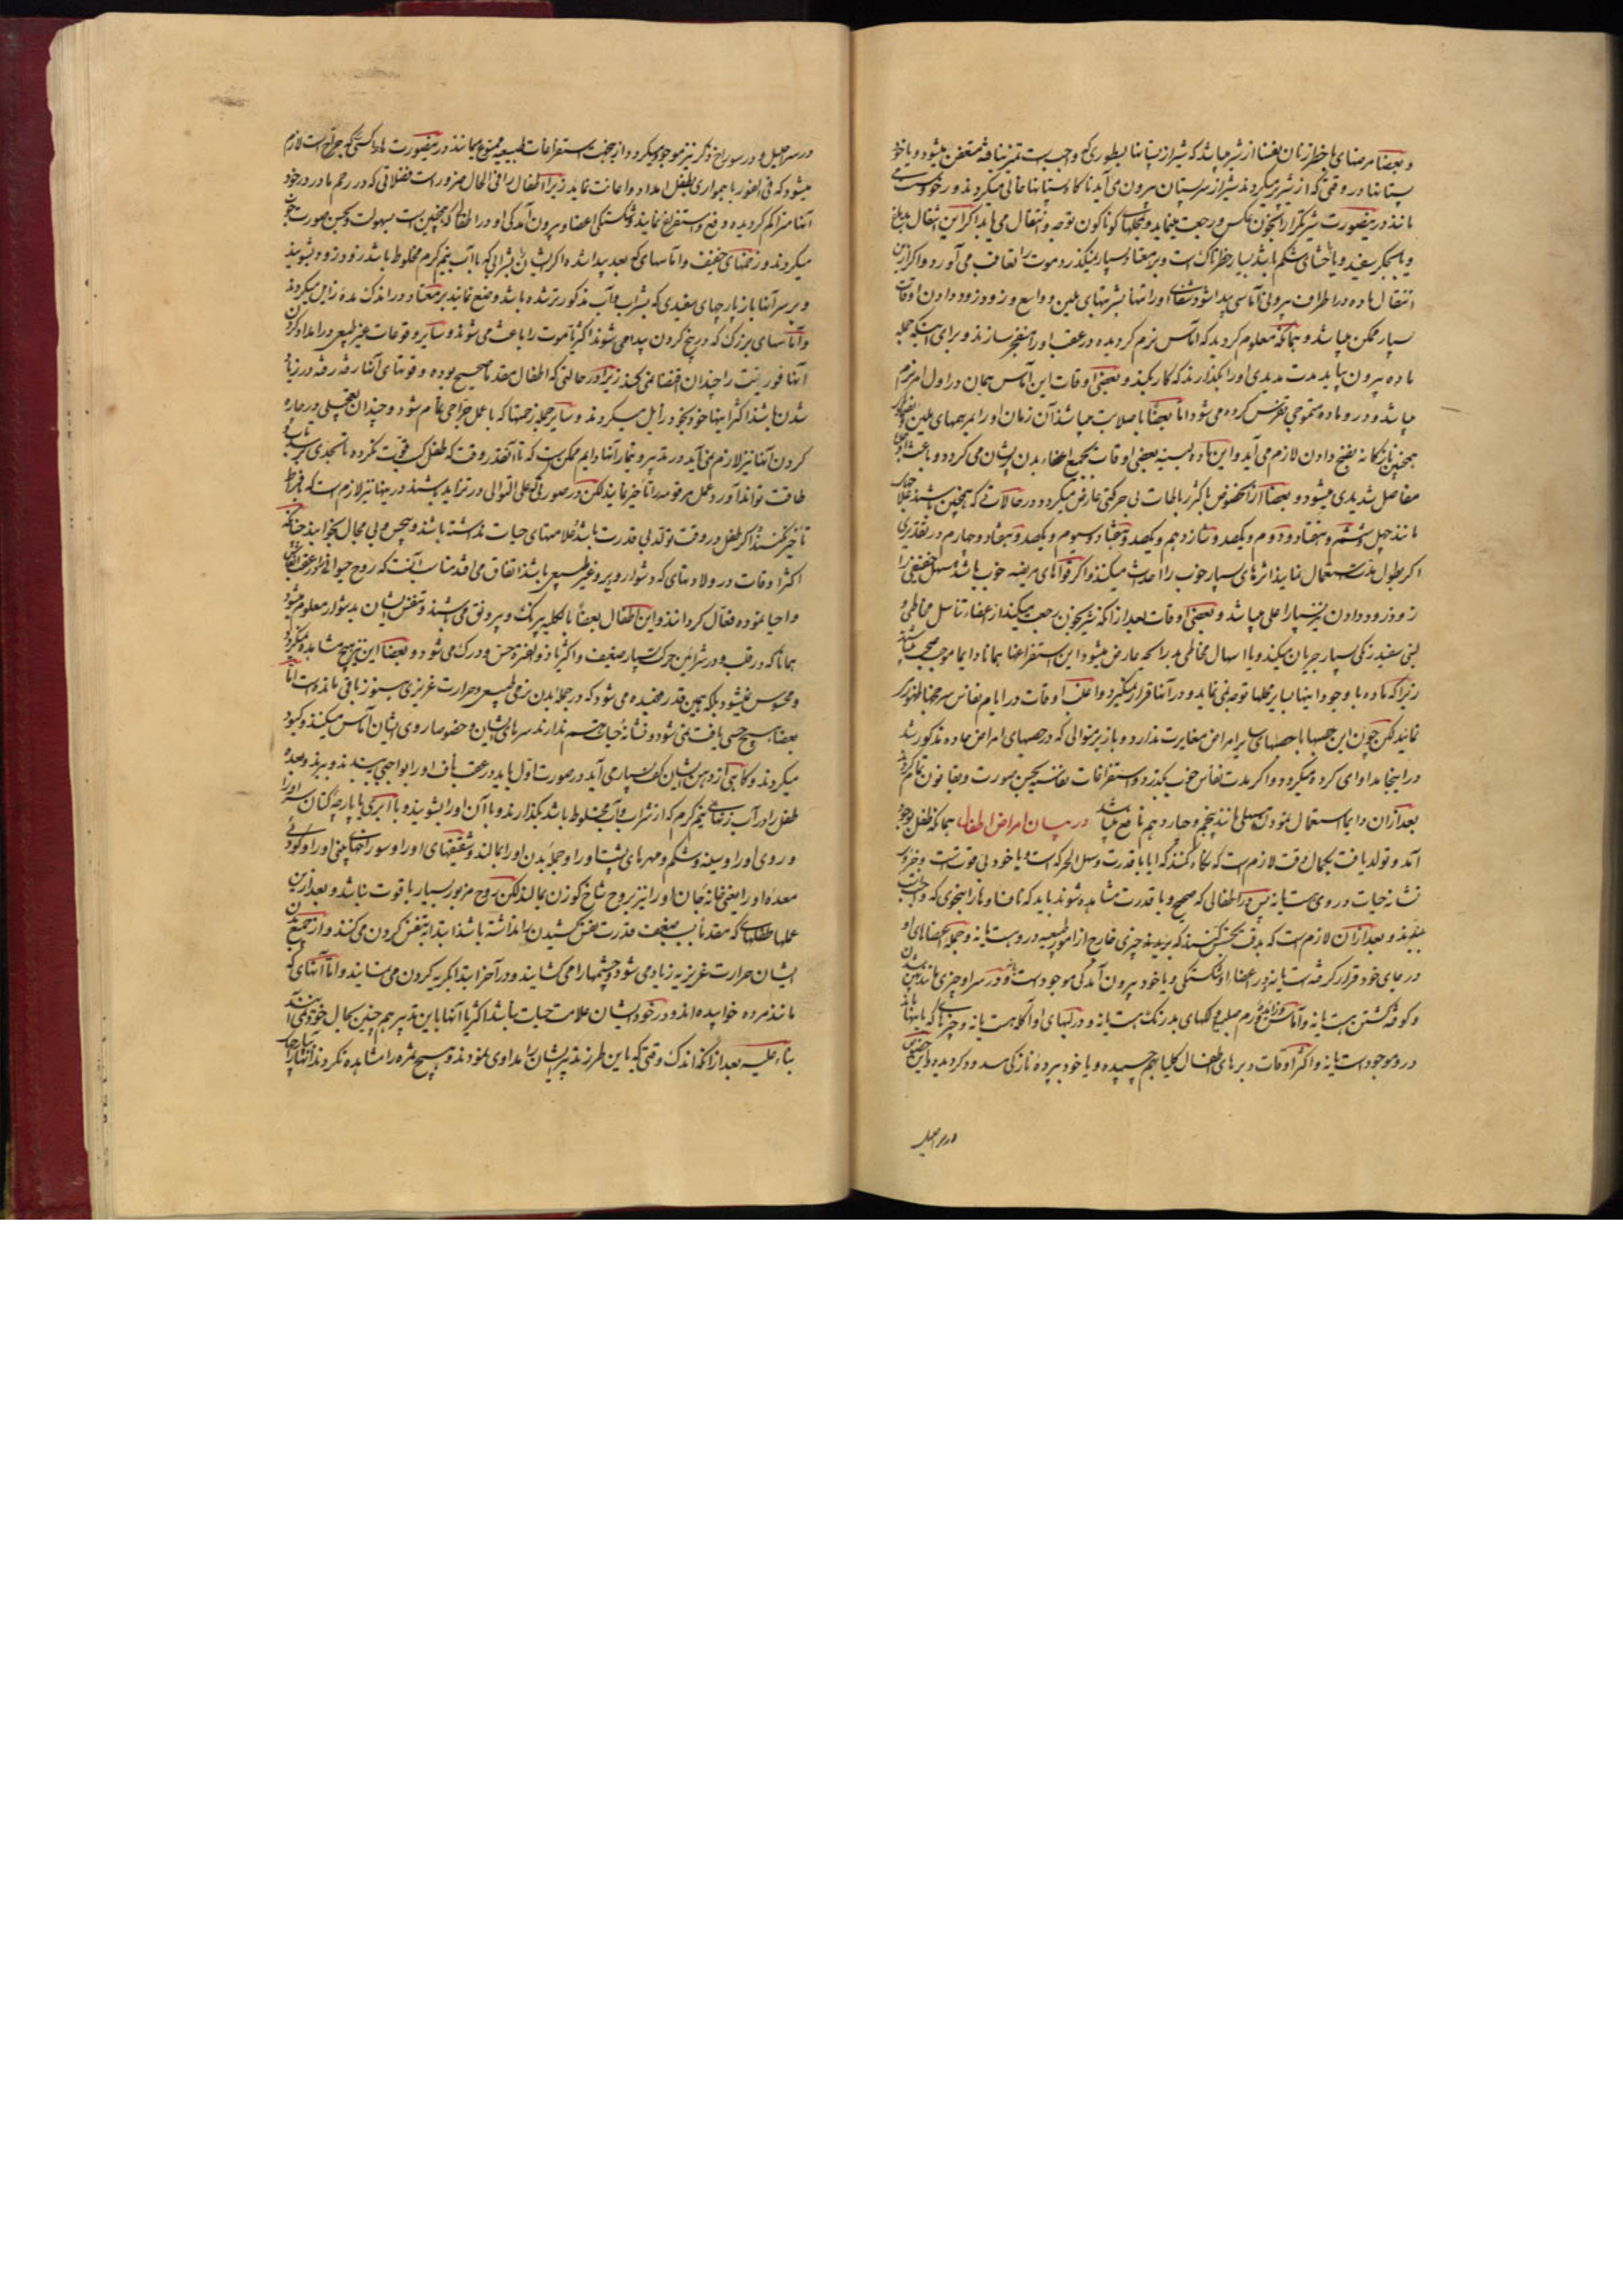 و بعضا مرضهای با خطر زنان نفسا از شیر میباشد که شیر از پستانها بطوری که واجب است تمیز نیافته متعفن میشود و یا خود
پستانها در وقتی که از شیر پر میکردند شیر از سر پستان بیرون می آید ناکاه پستانها خالی میکردند و رخو و سست می
مانند در اینصورت شیر تکرار بخون عکس و رجعت مینماید و بمحلهای کوناکون توجه و انتقال می یابد اکر این انتقال بدماغ
و یا بجکر سفید و یا باحشای شکم باشد بسیار خطرناک است و بر معتاد بسیار نمیکذرد و موت را تعاقب می آورد و اکر ازین
انتقال ماده در اطراف بیرونی آماسی پیدا شود شفای او را تنها بشربتهای ملین و واسع و زود زود دادن اوقات
بسیار ممکن میباشد و همانکه معلوم کردید که اماس نرم کردیده در عقب او را منفجر سازند و برای اینکه جمله
ماده بیرون بیاید مدت مدیدی او را بکذارند که کار بکند و بعضی اوقات این آماس همان در اول امر نرم
میباشد و در و ماده متموجی تفرس کرده می شود اما بعضا با صلابت میباشد آن زمان او را بمرهمهای ملین
همچنین بازکانه نضج دادن لازم می آید و این ماده بسینه بعضی اوقات بجمیع اعضاء بدن پریشان می کردد و باعث
مفاصل شدیدی میشود و بعضا از آنخصوص باکثر رباطات بی حرکتی عارض میکردد در حالاتی که همچنین باشند
مانند چهل و ششم و هفتاد و دوم و یکصد و شانزدهم و یکصد و هفتاد و سیوم و یکصد و هفتاد و چهارم در تقدیری
اکر بطول مدت استعمال نمایند اثرهای بسیار خوب را احداث میکنند و اکر قواهای مریضه خوب باشد مسهل خفیفی را
زود زود دادن نیز بسیار اعلی میباشد و بعضی اوقات بعد از آنکه شیر بخون رجعت میکند از اعضاء تناسل مخاطی و
لبنی سفید رنکی بسیار جریان میکند و یا اسهال مخاطی بد رایحه عارض میشود این استفراغها همانا دایما موجب صحت میباشند
زیرا که ماده با وجود اینها بسایر محلها توجه نمی نماید و در آنها قرار نمیکیرد و اغلب اوقات در ایام نفاس سرخجه ظهور
نمایند لکن چون این حصبها با حصبهای سایر امراض مغایرت ندارد و باز بر منوالی که در حصبهای امراض حاده مذکور شد
در اینجا مداوای کرده میکردد و اکر مدت نفاس خوب بکذرد و استفراغات نفاسیه بحسن صورت و بقانون تمام کردند
بعد از آن دایما استعمال نمودن مسهلی مانند پنجم و چهاردهم نافع میباشد در بیان امراض اطفال همانکه طفل بوجود
آمد و تولد یافت بکمال دقت لازم است که نکاه کنند که ایا با قدرت و سهل الحرکه است و یا خود بی قوتست و هیچ
نشانه حیات در وی هست یا نه پس در اطفالی که صحیح و با قدرت مشاهده شوند باید که ناف او ها را بنحوی که واجبست
ببندند و بعد از آن لازم است که بدقت تجسس کنند که ببینند چیزی خارج از امور طبیعیه در وست یا نه و جمله اعضاهای او
در جای خود قرار کرفته است یا نه در اعضاء او شکستکی و یا خود بیرون آمدکی موجود است و در سر او چیزی مانند پهن شدن
و کوفته کشتن هست یا نه و آماس و ورم صلب و لکهای بد رنک هست یا نه و در لبهای او آکله هست یا نه و چیزهای که باینها مانند
در و موجود است یا نه و اکثر اوقات دبرهای اطفال کلیا بهم چسپیده و یا خود بپرده نازکی مسدود کردیده و این چنین
در سر احلیل
در سر احلیل و در سوراخ ذکر نیز موجود میکردد و از اینجهت استفراغات طبیعیه ممنوع میمانند در اینصورت مادام کسی که جراح است لازم
میشود که فی الفور با همواری بطفل امداد و اعانت نماید زیرا اطفال را فی الحال ضرور است فضلاتی که در رحم مادر در جوف
آنها متراکم کردیده دفع و استفراغ نمایند و شکستکی اعضا و بیرون آمدکی او در اطفال که همچنین است بسهولت و بحسن صورت
میکردند و زخمهای خفیف و اماسهای که بعد پیدا شده اکر ایشان را بشرابی که با آب نیم کرم مخلوط باشد زود زود بشویند
و بر سر آنها باز پارچهای سفیدی که بشراب و آب مذکور تر شده باشد وضع نمایند بر معتاد در اندک مده زایل میکردند
و آماسهای بزرک که در بیخ کردن پیدا می شوند اکثریا موت را باعث می شوند و سایر وقوعات غیر طبیعی در امداد کردن
آنها فوریت را چندان اقتضا نمی کند زیرا در حالتی که اطفال مقدما صحیح بوده و قوتهای آنها رفته رفته در زیاد
شدن باشد اکثر اینها خود بخود زایل میکردند و سایر جمله زحمتها که با عمل جراحی تمام شود و چندان تعجیلی در چاره
کردن آنها نیز لازم نمی آید در تدبیر و تیمار آنها دایم ممکن است که تا آنقدر وقت که طفل کسب قوت نکرده تا بحدی که
طاقت تواند آورد عمل مرقومه را تاخیر نمایند لکن در صورتی که علی التوالی در تزاید باشند در اینها نیز لازم است که
تاخیر نکنند اکر طفل در وقت تولد بی قدرت باشد علامتهای حیات نداشته باشد و بیحس و بی مجال بخوابد چنانکه
اکثر اوقات در ولادتهای که دشوار و یر و غیر طبیعی باشد اتفاق می افتد مناسب آنست که روح حیوانی را در عقب
و احیا نموده فعال کردانند و این اطفال بعضا بالکلیه بیرنک و بیرونق می باشند و تنفس ایشان بدشواری معلوم میشود
همانا که در قلب و در شرائین حرکت بسیار ضعیف و اکثریا زو الغره حس و درک می شود و بعضا این نیز هیچ مشاهده نمیکردد
و محسوس نمیشود بلکه همین قدر فهمیده می شود که در جمله بدن نرمی طبیعی و حرارت غریزی هنوز باقی مانده است اما
بعضا هیچ حسی یافت نمی شود و نشانه حیات هم ندارند سرهای ایشان و خصوصا روی ایشان آماس میکند و کبود
میکردند و کاهی از دهن ایشان کف بسیار می آید در صورت اول باید در عقب ناف او را بواجبی ببندند و ببرند و بعده
طفل را در آب زیاده نیم کرم که از شراب و آب مخلوط باشد بکذارند و با آن او را بشویند و با ابری یا با پارچه کتان سر او را
و روی او را و سینه و شکم و مهرهای پشت او را و جمله بدن او را بمالند و شقیقهای او را و سوراخهای بینی او را و کودی
معده او را یعنی خانه جان او را نیز بروح شاخ کوزن بمالند لکن روح مزبور بسیار با قوت نباشد و بعد از این
عملها طفلهای که مقدما بسبب ضعف قدرت نفس کشیدن را نداشته باشد ابتدا به تنفس کردن می کنند و از جمیع بدن
ایشان حرارت غریزیه زیاد می شود و چشمها را می کشایند و در آخر ابتدا بکریه کردن می نمایند و اما آنهای که
مانند مرده خوابیده اند و در خود ایشان علامت حیات نباشد اکثریا آنها باین تدبیر هم چنین بحال خود نمی آیند
بناء علیه بعد از آنکه اندک وقتی که باین طرز تدبیر ایشان را مداوی نمودند و هیچ ثمره را مشاهده نکردند